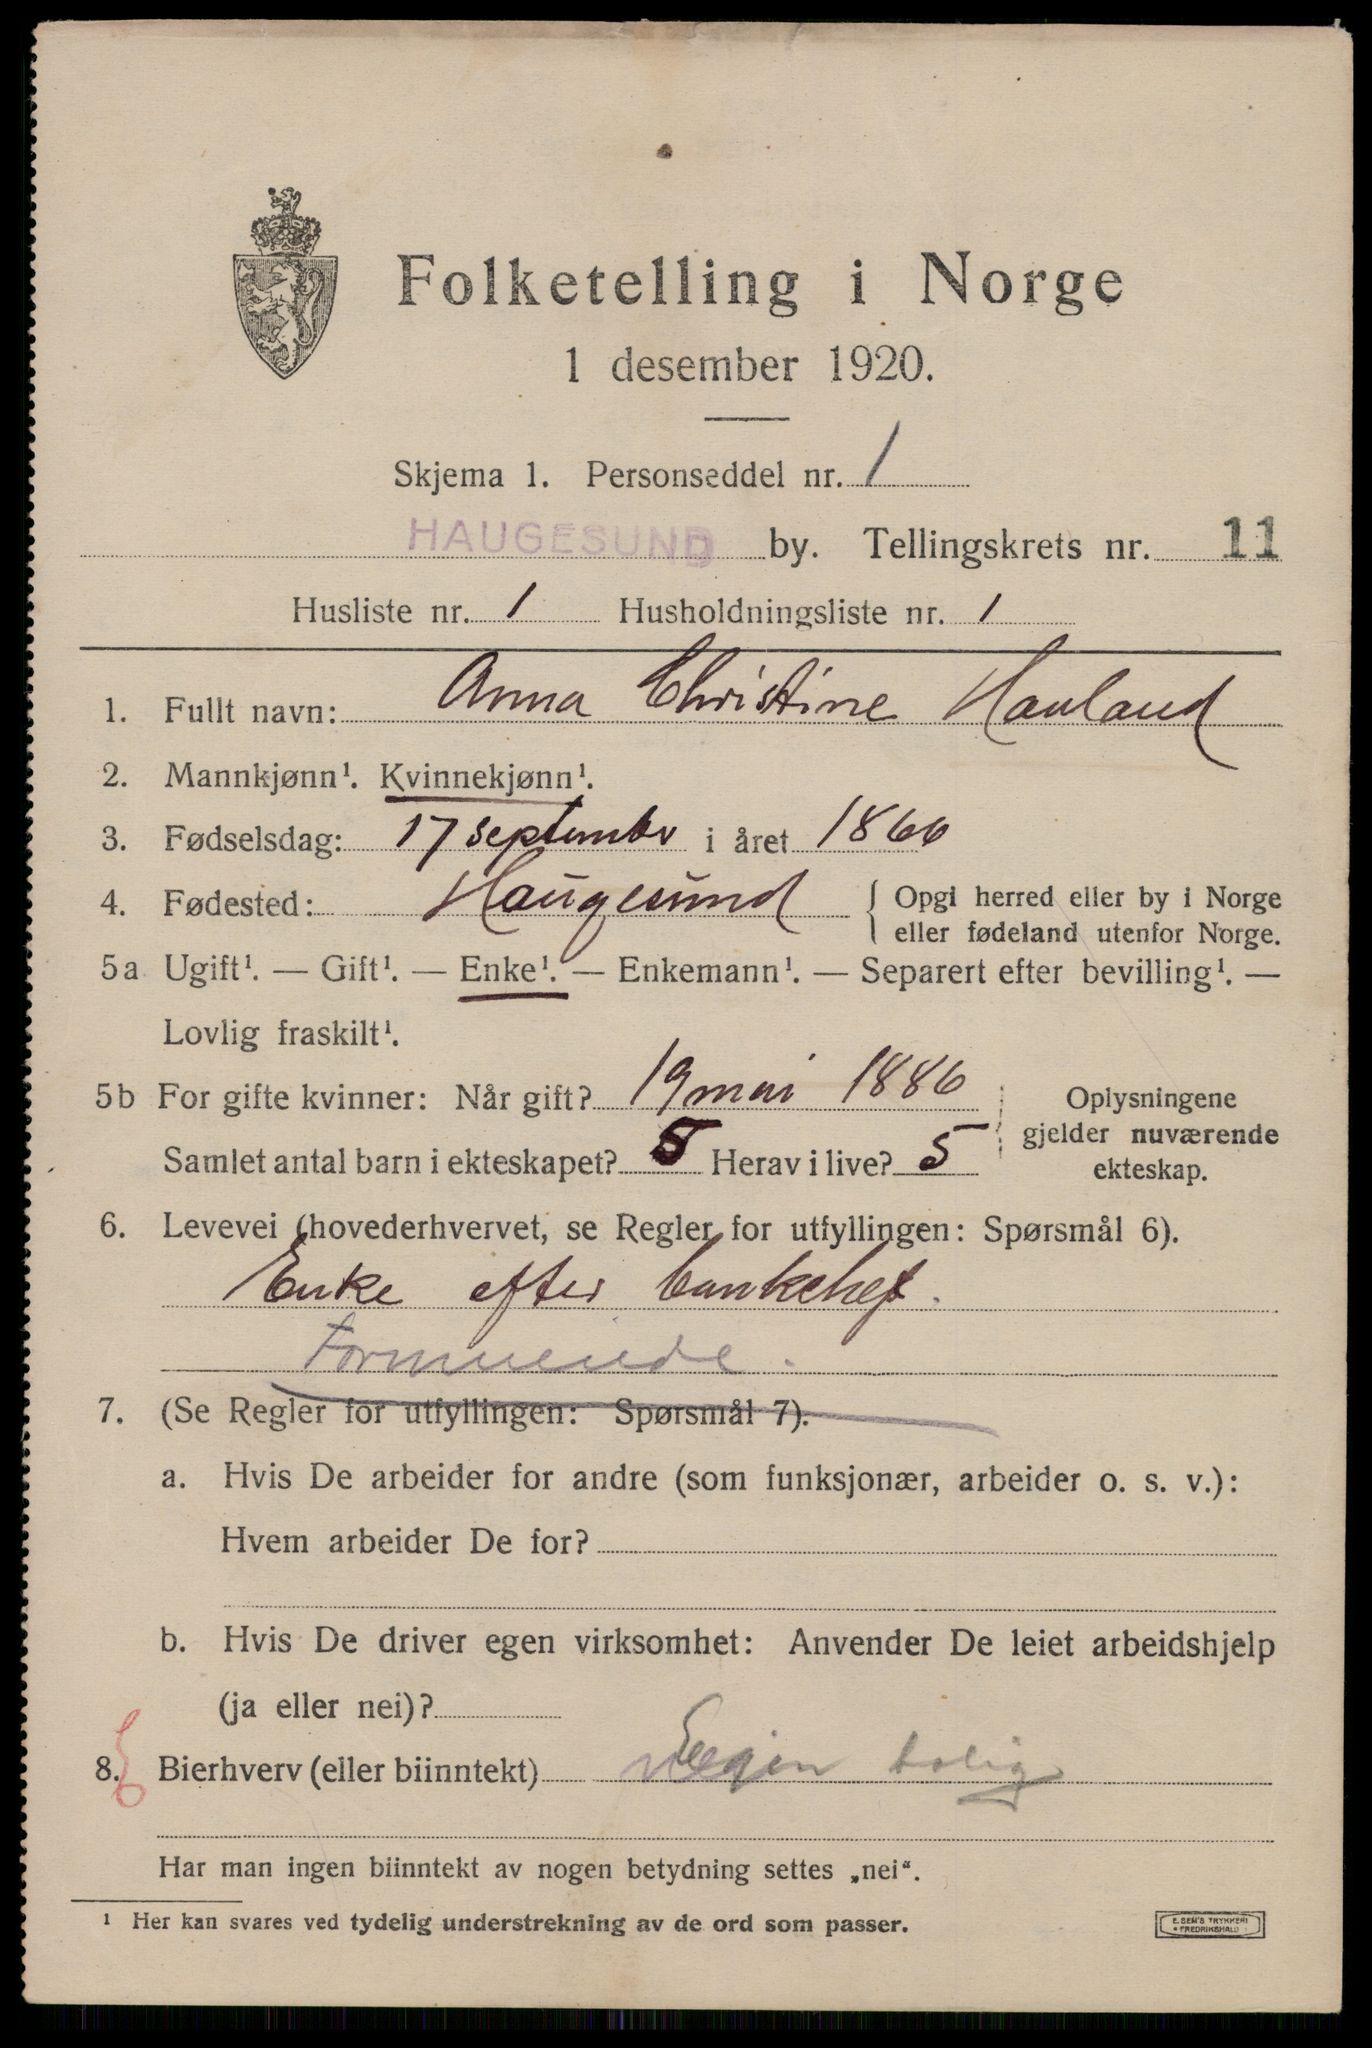 Folketelling i Norge
1 desember 1920.
Skjema 1. Personseddel nr. 1
HAUGESUND by. Tellingskrets nr. 11
Husliste nr. 1 Husholdningsliste nr. 1
1. Fullt navn: Anna Christine Hauland
2. Mannkjønn¹. Kvinnekjønn¹.
3. Fødselsdag: 17 september i året 1866
4. Fødested: Haugesund { Opgi herred eller by i Norge
eller fødeland utenfor Norge.
5a Ugift¹. — Gift¹. — Enke¹. — Enkemann¹. — Separert efter bevilling¹. —
Lovlig fraskilt¹.
5b For gifte kvinner: Når gift? 19 mai 1886
Samlet antal barn i ekteskapet? 5 Herav i live? 5
Oplysningene
gjelder nuværende
ekteskap.
6. Levevei (hovederhvervet, se Regler for utfyllingen: Spørsmål 6).
Enke efter bankchef.
Formuende.
7. (Se Regler for utfyllingen: Spørsmål 7).
a. Hvis De arbeider for andre (som funksjonær, arbeider o. s. v.):
Hvem arbeider De for?
b. Hvis De driver egen virksomhet: Anvender De leiet arbeidshjelp
(ja eller nei)?
8. Bierhverv (eller biinntekt) Egen bolig
Har man ingen biinntekt av nogen betydning settes „nei“.
¹ Her kan svares ved tydelig understrekning av de ord som passer.
E. SEM'S TRYKKERI
FREDRIKSHALD